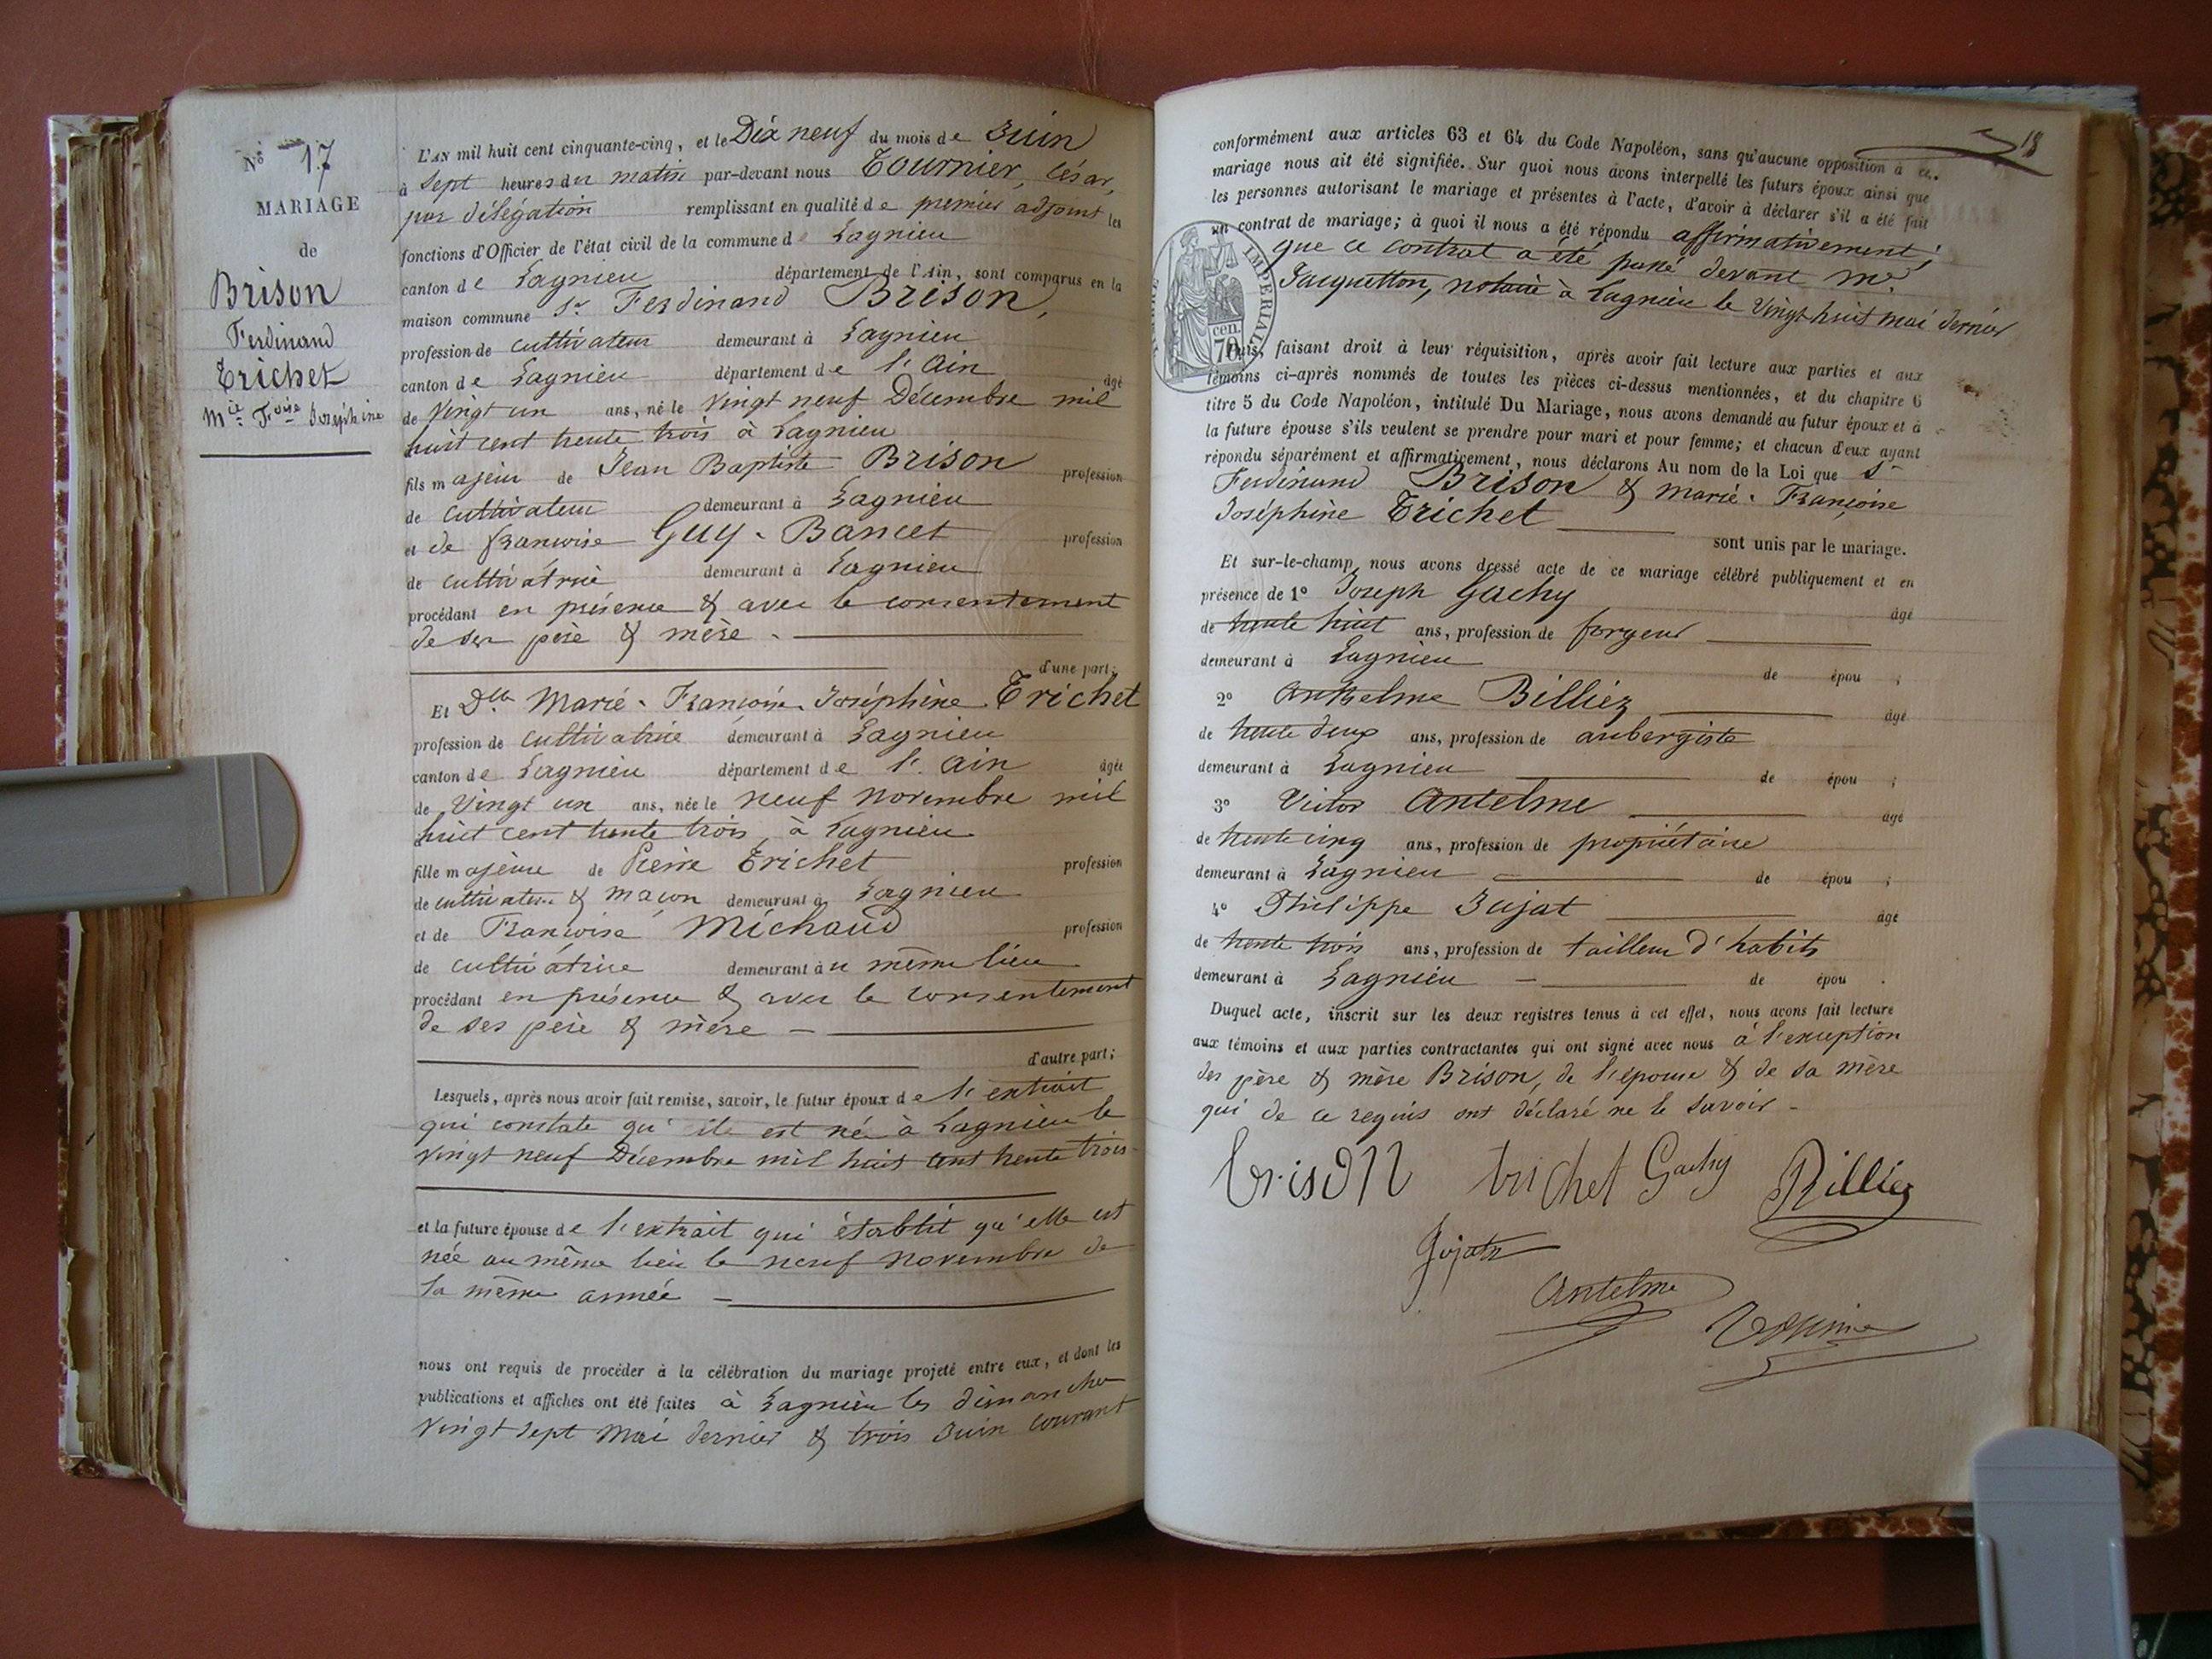 N° 17
MARIAGE
de
Brison
Ferdinand
Trichet
M.ie F.oise Joséphine
L'AN mil huit cent cinquante-cinq, et le Dix neuf du mois de Juin
à Sept heures du matin par-devant nous Tournier, César,
par délégation remplissant en qualité de premier adjoint les
fonctions d'Officier de l'état civil de la commune de Lagnieu
canton de Lagnieu département de l'Ain, sont comparus en la
maison commune Sr Ferdinand Brison,
profession de cultivateur demeurant à Lagnieu
canton de Lagnieu département de l'Ain âgé
de vingt un ans, né le vingt neuf Décembre mil
huit cent trente trois à Lagnieu
fils majeur de Jean Baptiste Brison profession
de cultivateur demeurant à Lagnieu
et de françoise Guy-Bancet profession
de cultivatrice demeurant à Lagnieu
procédant en présence & avec le consentement
de ses père & mère. d'une part;
Et Dlle Marie-Françoise-Joséphine Trichet
profession de cultivatrice demeurant à Lagnieu
canton de Lagnieu département de l'Ain âgée
de Vingt un ans, née le neuf novembre mil
huit cent trente trois, à Lagnieu
fille majeure de Pierre Trichet profession
de cultivateur & maçon demeurant à Lagnieu
et de Françoise Michaud profession
de cultivatrice demeurant au même lieu
procédant en présence & avec le consentement
de ses père & mère —
d'autre part;
Lesquels, après nous avoir fait remise, savoir, le futur époux de l'extrait
qui constate qu'il est né à Lagnieu le
vingt neuf Décembre mil huit cent trente trois
et la future épouse de l'extrait qui établit qu'elle est
née au même lieu le neuf novembre de
la même année —
nous ont requis de procéder à la célébration du mariage projeté entre eux, et dont les
publications et affiches ont été faites à Lagnieu les dimanches
vingt sept Mai dernier & trois Juin courant
18
conformément aux articles 63 et 64 du Code Napoléon, sans qu'aucune opposition à ce
mariage nous ait été signifiée. Sur quoi nous avons interpellé les futurs époux ainsi que
les personnes autorisant le mariage et présentes à l'acte, d'avoir à déclarer s'il a été fait
un contrat de mariage; à quoi il nous a été répondu affirmativement;
que ce contrat a été passé devant Me
Jacquetton, notaire à Lagnieu le Vingt huit mai dernier
TIMBRE IMPERIAL
70 cen.
Puis, faisant droit à leur réquisition, après avoir fait lecture aux parties et aux
témoins ci-après nommés de toutes les pièces ci-dessus mentionnées, et du chapitre 6
titre 5 du Code Napoléon, intitulé Du Mariage, nous avons demandé au futur époux et à
la future épouse s'ils veulent se prendre pour mari et pour femme; et chacun d'eux ayant
répondu séparément et affirmativement, nous déclarons Au nom de la Loi que Sr
Ferdinand Brison & Marie-Françoise
Joséphine Trichet
sont unis par le mariage.
Et sur-le-champ nous avons dressé acte de ce mariage célébré publiquement et en
présence de 1° Joseph Gachy âgé
de trente huit ans, profession de forgeur
demeurant à Lagnieu de épou ;
2° Anthelme Billiez âgé
de trente deux ans, profession de aubergiste
demeurant à Lagnieu de épou ;
3° Victor Antelme âgé
de trente cinq ans, profession de propriétaire
demeurant à Lagnieu de épou ;
4° Philippe Jujat âgé
de trente trois ans, profession de tailleur d'habits
demeurant à Lagnieu — de épou .
Duquel acte, inscrit sur les deux registres tenus à cet effet, nous avons fait lecture
aux témoins et aux parties contractantes qui ont signé avec nous à l'exception
des père & mère Brison, de l'épouse & de sa mère
qui de ce requis ont déclaré ne le savoir -
brison trichet Gachy Billiez
Jujat
Antelme